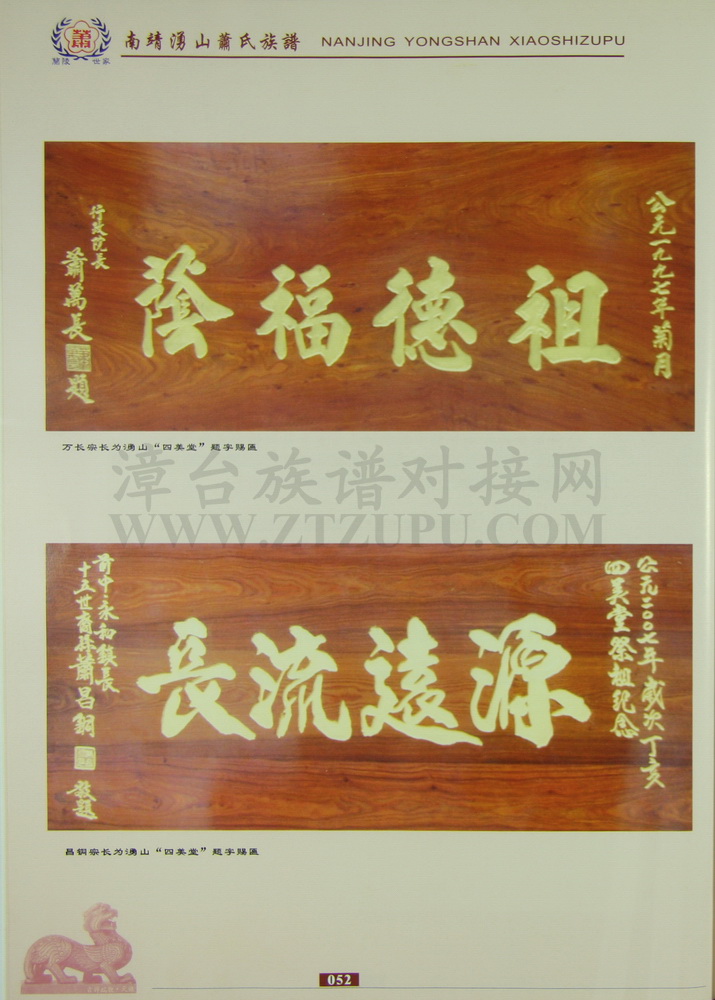 南靖湧山蕭氏族譜 NANJING YONGSHAN XIAOSHIZUPU
蕭
蘭陵 世家
公元一九九七年菊月
祖德福蔭
行政院長
蕭萬長
題
万长宗长为湧山“四美堂”题字赐匾
漳台族谱对接网
WWW.ZTZUPU.COM
公元二〇〇七年歲次丁亥
四美堂祭祖纪念
源遠流長
前中永和鎮長
十五世裔孫蕭昌銅
敬題
昌铜宗长为湧山“四美堂”题字赐匾
052